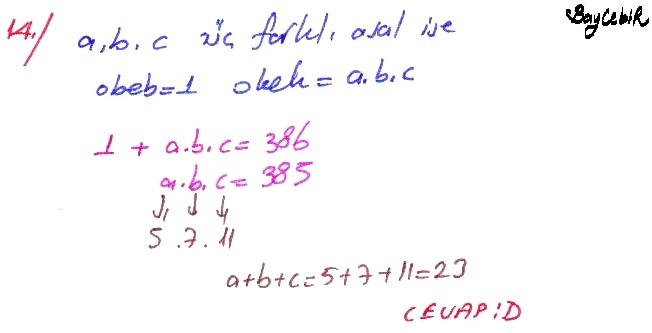 BayCebiR
14.) a,b,c üç farklı asal ise
obeb=1 okek=a.b.c
1 + a.b.c=386
a.b.c=385
↓ ↓ ↓
5.7.11
a+b+c=5+7+11=23
CEVAP:D